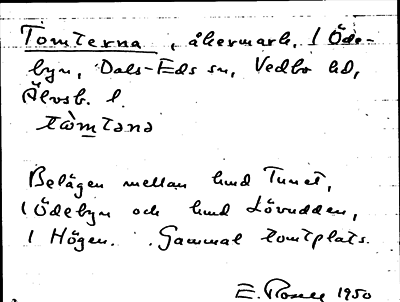 Tomterna, åkermark, 1 Öde-
byn, Dals-Eds sn, Vedbo hd,
Älvsb. l.
tòmtənə
Belägen mellan hmd Tunet,
1 Ödebyn och hmd Lövudden,
1 Högen. Gammal tomtplats.
E. 1950